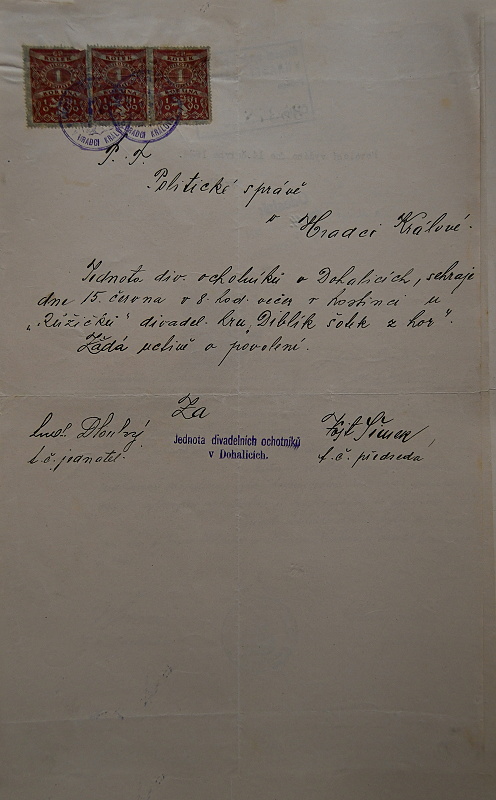 KOLEK KOLEK KOLEK
1 1 1
KORUNA KORUNA KORUNA
HRADCI KRÁLOVÉ
P. T.
Politické správě
v Hradci Králové.
Jednota div. ochotníků v Dohalicích, sehraje
dne 15. června v 8 hod. večer v hostinci u
„Růžičků" divadel. hru „Diblík šotek z hor".
Žádá uctivě o povolení.
Za
Dlouhý
Jednota divadelních ochotníků
v Dohalicích.
Vojt. Šimek
t. č. jednatel.
t. č. předseda